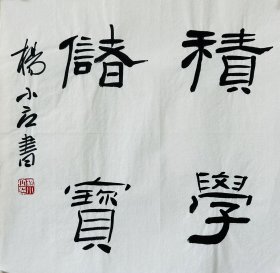 積學
儲寶
楊小石書